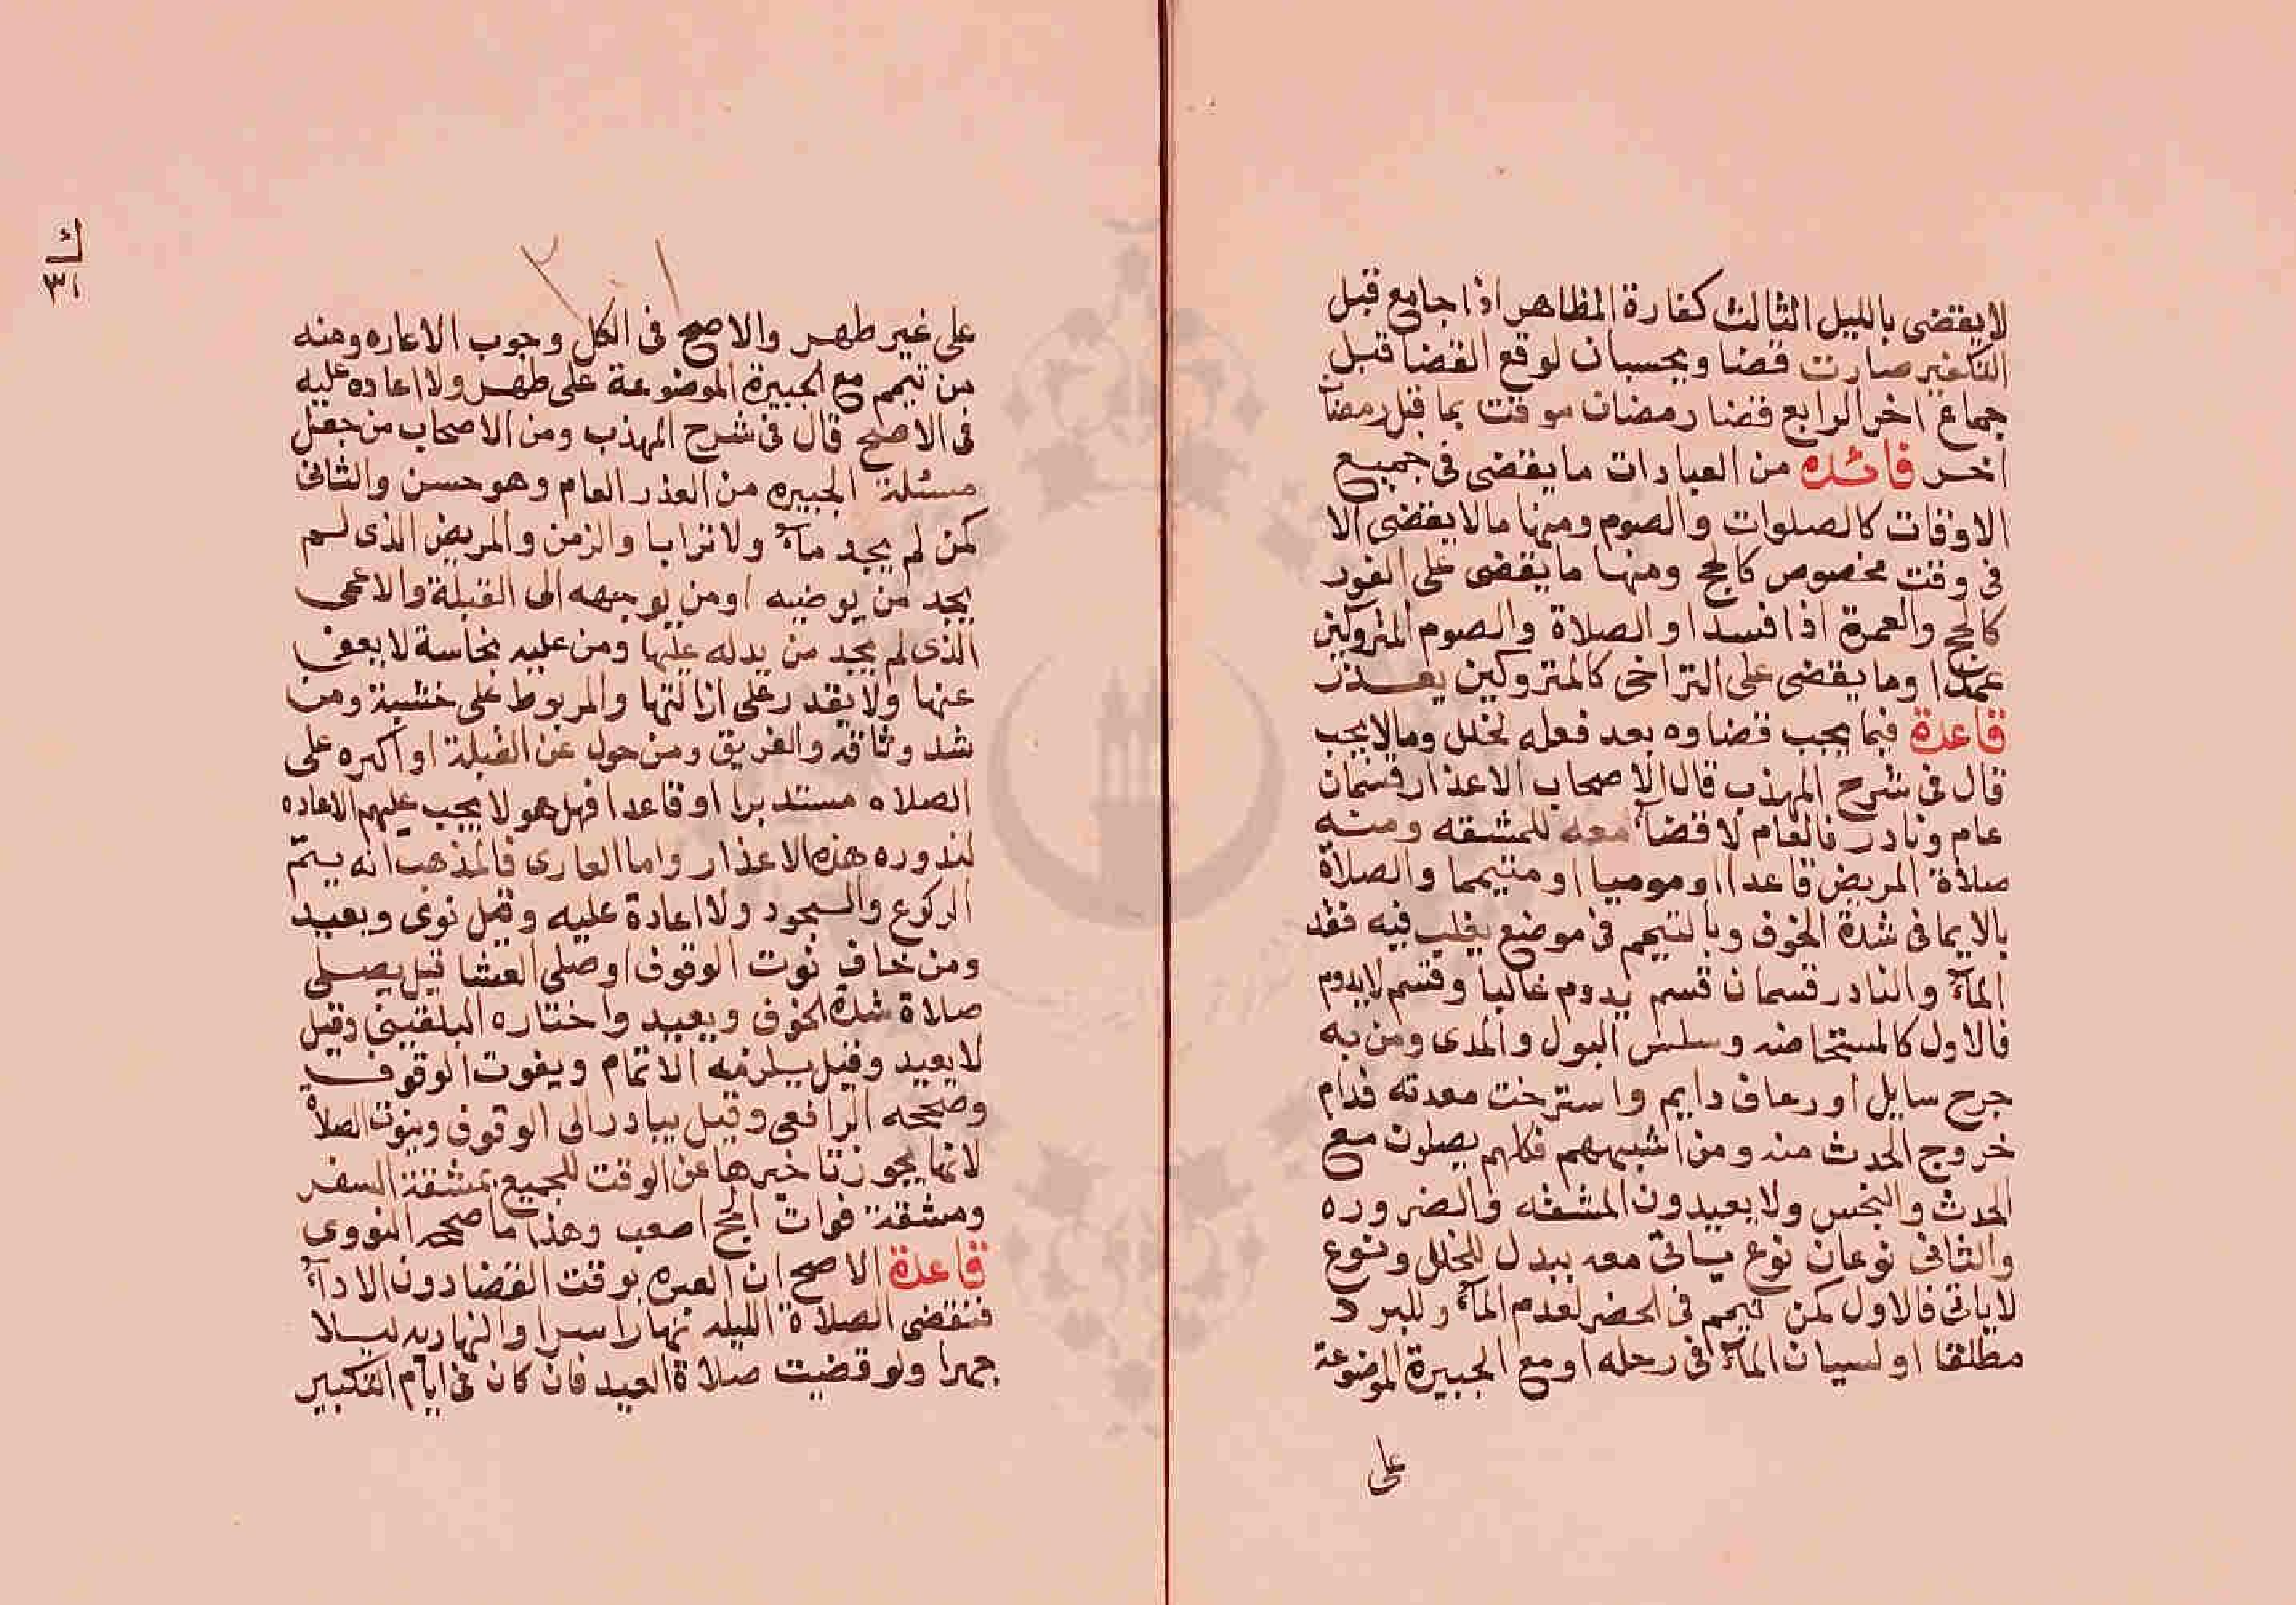 لا يقضى بالليل الثالث كفارة المظاهر اذا جامع قبل
التكفير صارت قضا ويحسبان لوقع القضا قبل
جماع اخر الرابع قضا رمضان موقت بما قبل رمضان
اخر فائده من العبادات ما يقضى فى جميع
الاوقات كالصلوات والصوم ومنها مالا يقضى الا
فى وقت مخصوص كالحج ومنها ما يقضى على الفور
كالحج والعمرة اذا فسدا والصلاة والصوم المتروكين
عمدا وما يقضى على التراخى كالمتروكين بعذر
قاعدة فيما يجب قضاوه بعد فعله لخلل ومالا يجب
قال فى شرح المهذب قال الاصحاب الاعذار قسمان
عام ونادر فالعام لا قضآ معه للمشقه ومنه
صلاة المريض قاعدا او موميا او متيمما والصلاة
بالايما فى شدة الخوف وبالتيمم فى موضع يغلب فيه فقد
المآء والنادر قسمان قسم يدوم غالبا وقسم لا يدوم
فالاول كالمستحاضه وسلس البول والمدى ومن به
جرح سايل او رعاف دايم واسترخت معدته فدام
خروج الحدث منه ومن اشبههم فكلهم يصلون مع
الحدث والنجس ولا يعيدون المشقه والضروره
والثانى نوعان نوع ياتى معه ببدل للخلل ونوع
لا ياتى فالاول كمن تيمم فى الحضر لعدم المآء وللبرد
مطلقا او لسيان المآء فى رحله او مع الجبيرة الموضوعة
على
ك
٣١
على غير طهر والاصح فى الكل وجوب الاعاره ومنه
من تيمم مع الجبيرة الموضوعة على طهر ولا اعاده عليه
فى الاصح قال فى شرح المهذب ومن الاصحاب من جعل
مسئلة الجبيره من العذر العام وهو حسن والثانى
كمن لم يجد مآء ولا ترابا والزمن والمريض الذى لم
يجد من يوضيه او من يوجهه الى القبلة والاعمى
الذى لم يجد من يدله عليها ومن عليه نجاسة لا يعفى
عنها ولا يقدر على ازالتها والمربوط على خشبة ومن
شد وثاقه والغريق ومن حول عن القبلة او اكره على
الصلاه مستدبرا او قاعدا فهل هو لا يجب عليهم الاعاده
لندوره هذه الاعذار واما العارى فالمذهب انه يتم
الركوع والسجود ولا اعادة عليه وقيل نوى وبعيد
ومن خاف نوت الوقوف او صلى العشا قيل يصلى
صلاة شدة الخوف ويعيد واختاره البلقينى وقيل
لا يعيد وقيل يلزمه الاتمام ويفوت الوقوف
وصححه الرافعى وقيل يبادر الى الوقوف ويفوت الصلاة
لانها يجوز تاخيرها عن الوقت للجميع بمشقة السفر
ومشقة فوات الحج اصعب وهذا ما صححه النووى
قاعدة الاصح ان العبره بوقت القضا دون الادآء
فتقضى الصلاة الليله نهارا سرا والنهاريه ليلا
جهرا ولو قضيت صلاة العيد فان كان فى ايام التكبير